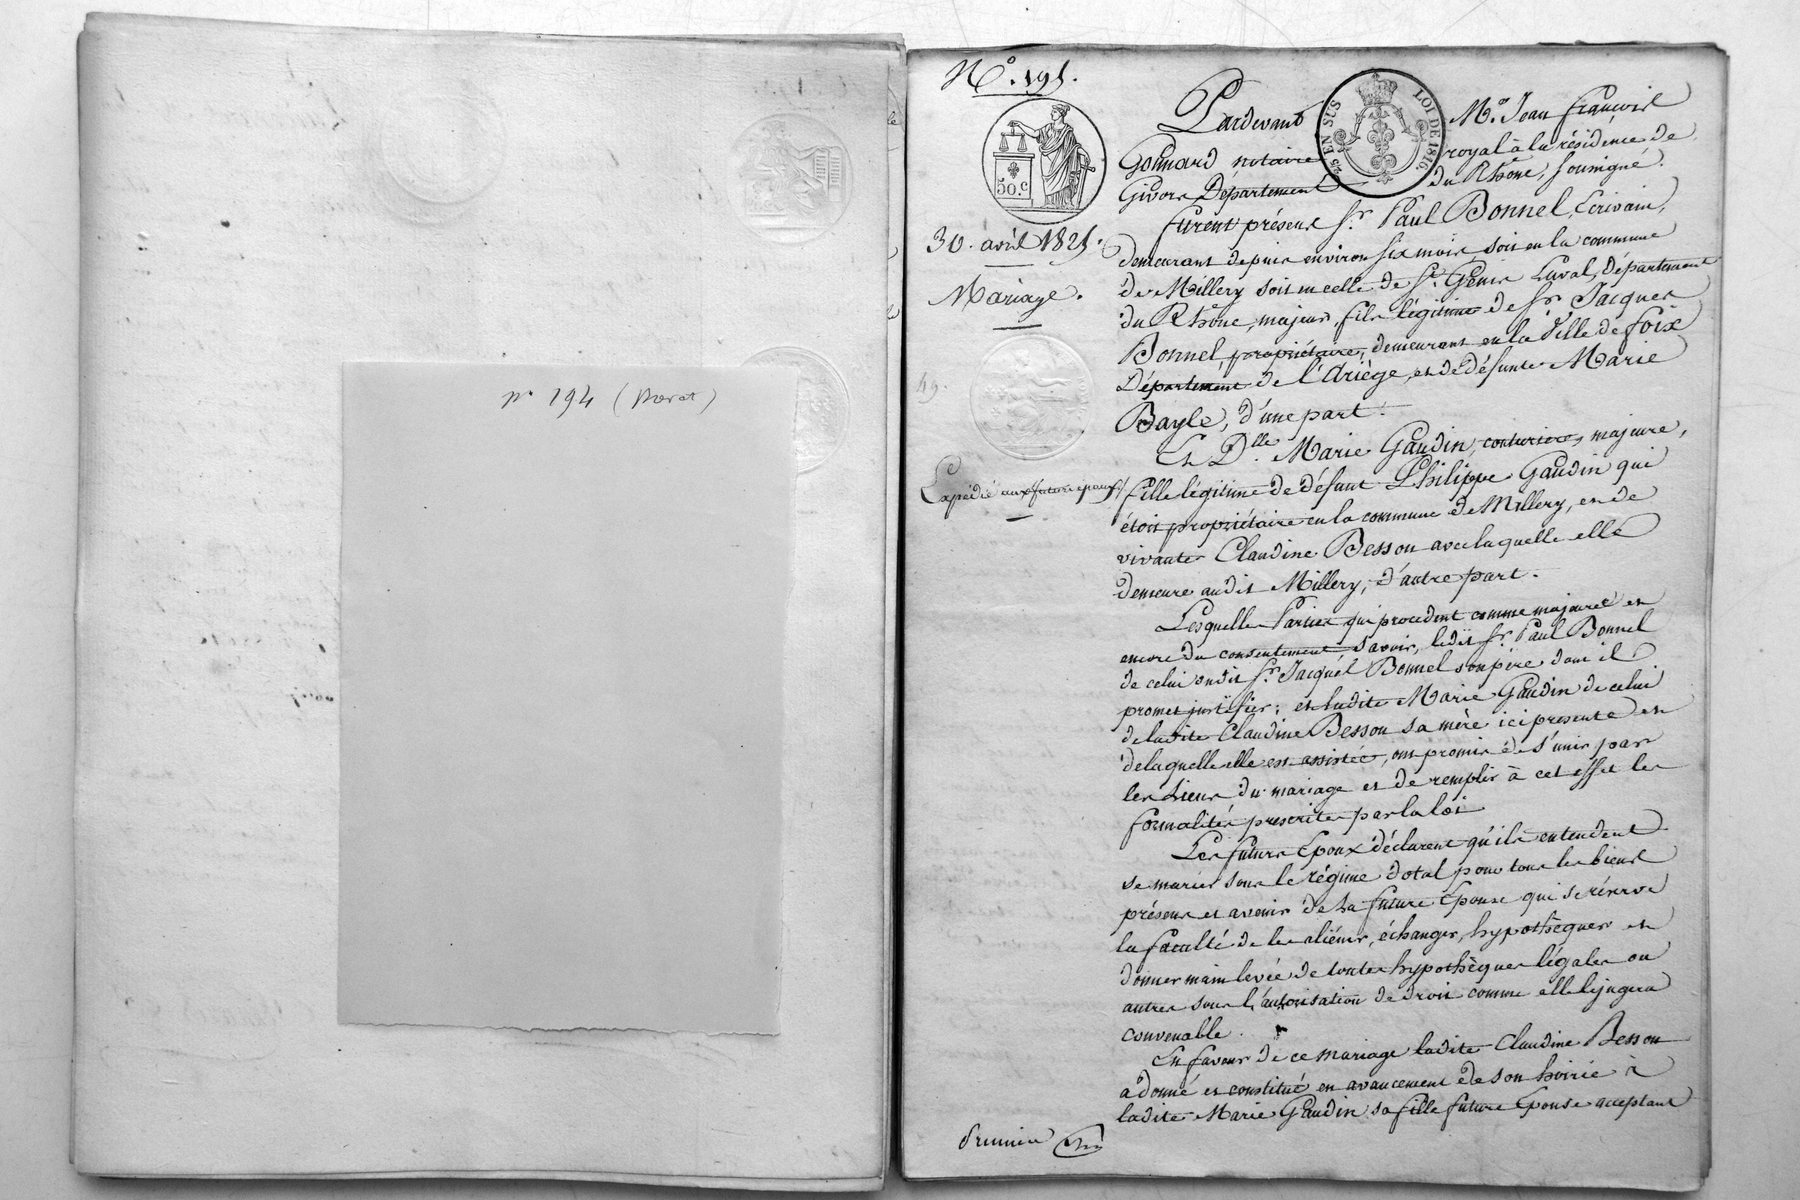 nº 194 (Morat)
Nº. 195.
50.c
25 EN SUS
LOI DE 1816.
30. avril 1825.
Mariage.
49.
Expédié aux futurs epoux/.
Pardevant Mº. Jean françois
Gonnard notaire royal à la résidence de
Givors Département du Rhône, Soussigné.
furent présens Sr. Paul Bonnel, Ecrivain,
demeurant depuis environ Six mois, soit en la commune
de Millery soit en celle de St. Genis Laval, Département
du Rhône, majeur, fils légitime de Sr. Jacques
Bonnel, propriétaire, demeurant en la Ville de foix
Département de l'Ariège, et de défunte Marie
Bayle, d'une part.
Et Dlle. Marie Gaudin, couturière, majeure,
fille légitime de défunt Philippe Gaudin qui
étoit propriétaire en la commune de Millery, et de
vivante Claudine Besson avec laquelle elle
demeure audit Millery, d'autre part.
Lesquelles Parties qui procèdent comme majeures et
encore du consentement, Savoir, ledit Sr. Paul Bonnel
de celui dudit Sr. Jacques Bonnel son père dont il
promet justifier; et ladite Marie Gaudin de celui
de ladite Claudine Besson sa mère ici présente et
de laquelle elle est assistée, ont promis de s'unir par
les Liens du mariage et de remplir à cet effet les
formalités prescrites par la loi.
Les futurs Epoux déclarent qu'ils entendent
se marier sous le régime dotal pour tous les biens
présens et avenir de la future Epouse qui se réserve
la faculté de les aliéner, échanger, hypothéquer et
donner main levée de toutes hypothèques légales ou
autres sous l'autorisation de droit comme elle le jugera
convenable.
En faveur de ce mariage ladite Claudine Besson
a donné et constitué en avancement de son hoirie à
ladite Marie Gaudin sa fille future Epouse acceptant